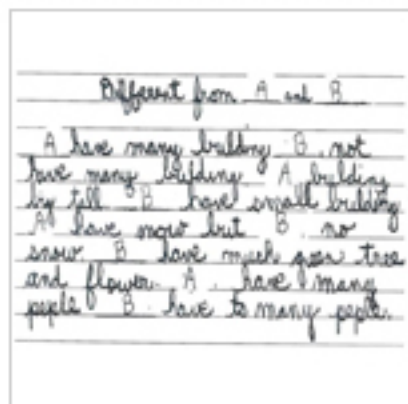 Different from A and B
A have many building B not
have many building A building
big tall B have small building
A have snow but B no
snow B have much green tree
and flower. A have many
peple B have to many peple.